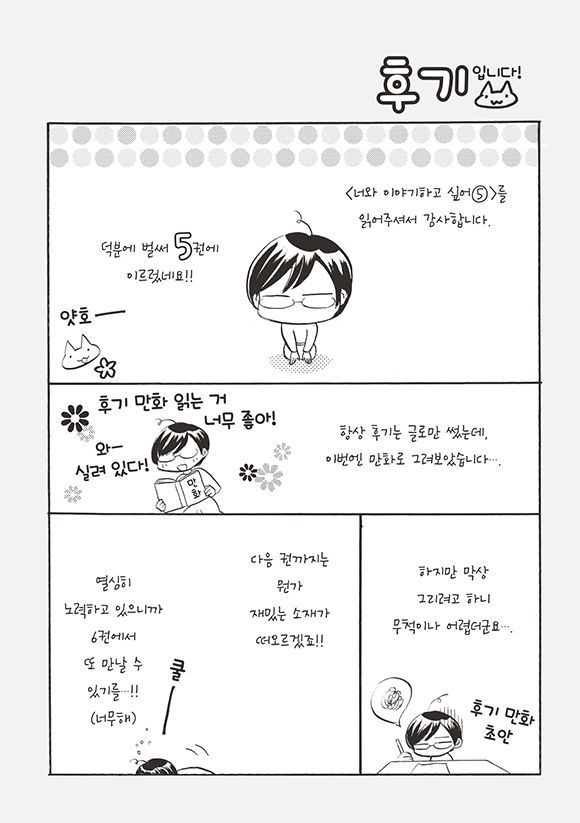 후기입니다!
<너와 이야기하고 싶어⑤>를
읽어주셔서 감사합니다.
덕분에 벌써 5권에
이르렀네요!!
얏호—
항상 후기는 글로만 썼는데,
이번엔 만화로 그려보았습니다….
후기 만화 읽는 거
너무 좋아!
와—
실려 있다!
만화
하지만 막상
그리려고 하니
무척이나 어렵더군요….
후기 만화
초안
다음 권까지는
뭔가
재밌는 소재가
떠오르겠죠!!
열심히
노력하고 있으니까
6권에서
또 만날 수
있기를…!!
(너무해)
쿨